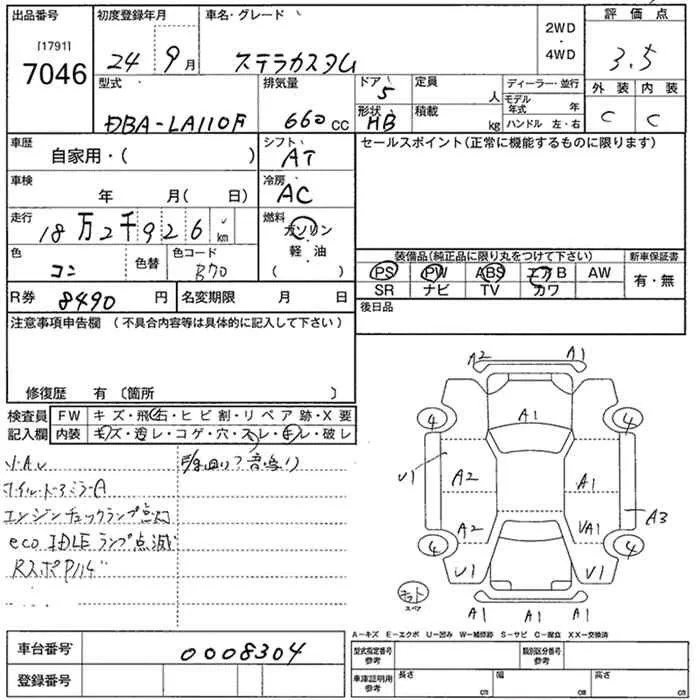 出品番号 初度登録年月 車名・グレード 2WD・4WD 評価点
[1791]
7046 24 9月 ステラカスタム 3.5
型式 排気量 ドア 定員 ディーラー・並行 外装 内装
DBA-LA110F 660cc 5 人 モデル年式 年 C C
形状 HB 積載 kg ハンドル 左・右
車歴 シフト セールスポイント(正常に機能するものに限ります)
自家用・( ) AT
車検 冷房
年 月( 日) AC
走行 燃料
18万2千926km ガソリン
軽・油
( )
色 色替 色コード
コン B70
装備品(純正品に限り丸をつけて下さい) 新車保証書
PS PW ABS エアB AW 有・無
SR ナビ TV カワ
R券 8490円 名変期限 月 日 後日品
注意事項申告欄 (不具合内容等は具体的に記入して下さい)
修復歴 有〔箇所 〕
検査員記入欄 FW キズ・飛石・ヒビ割・リペア跡・X要
内装 キズ・汚レ・コゲ・穴・スレ・キレ・破レ
エンジンチェックランプ点灯
eco IDLEランプ点滅
A2 A1
A1
4 4
U1 A2 A1
A3
A2 VA1
4 4
U1 U1
スペア
A1 A1 A1
A-キズ E-エクボ U-凹み W-補修跡 S-サビ C-腐食 XX-交換済
車台番号 0008304
登録番号
型式指定番号 参考 類別区分番号 参考
車庫証明用 参考 長さ cm 幅 cm 高さ cm